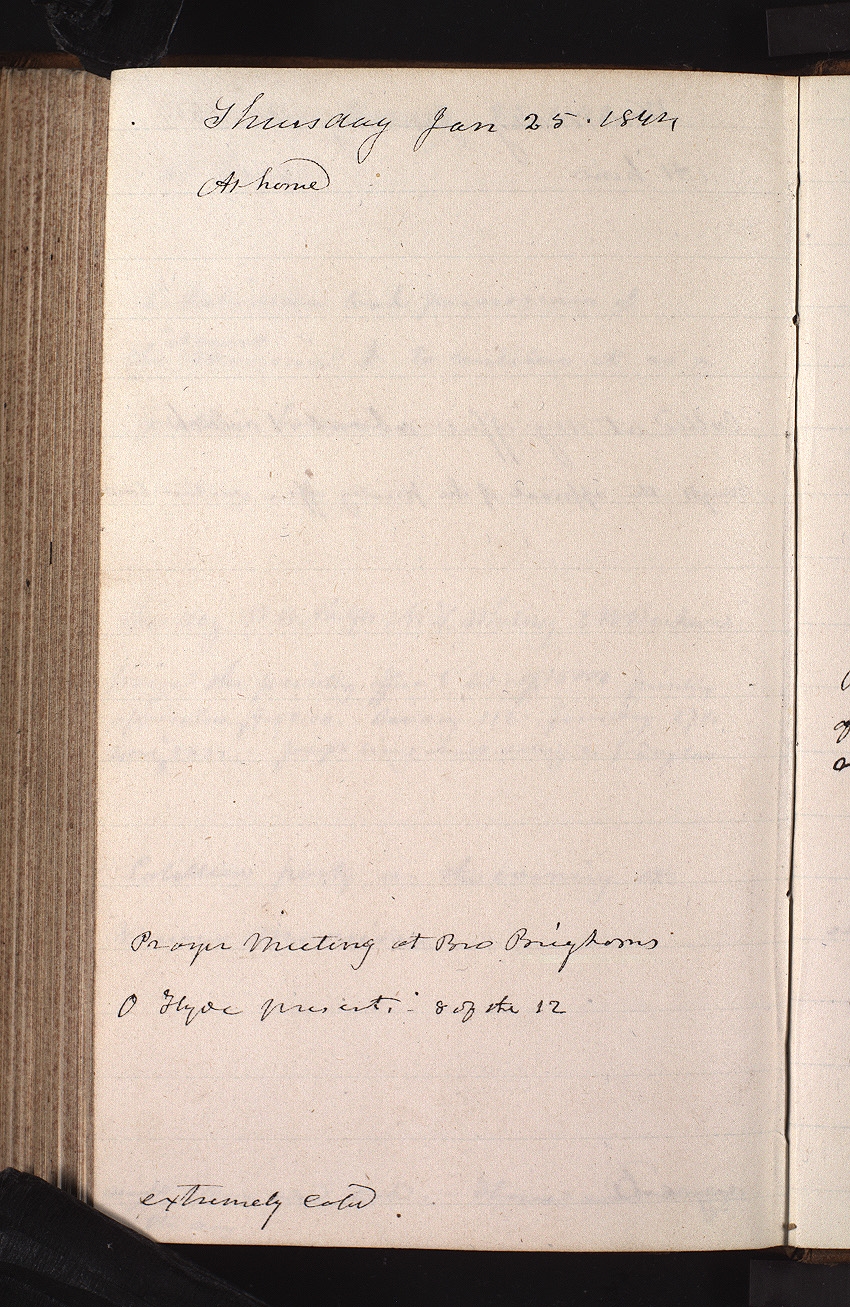 Thursday Jan 25. 1844
At home
Prayer Meeting at Bro Brighams
O Hyde present. - 8 of the 12
extremely cold.